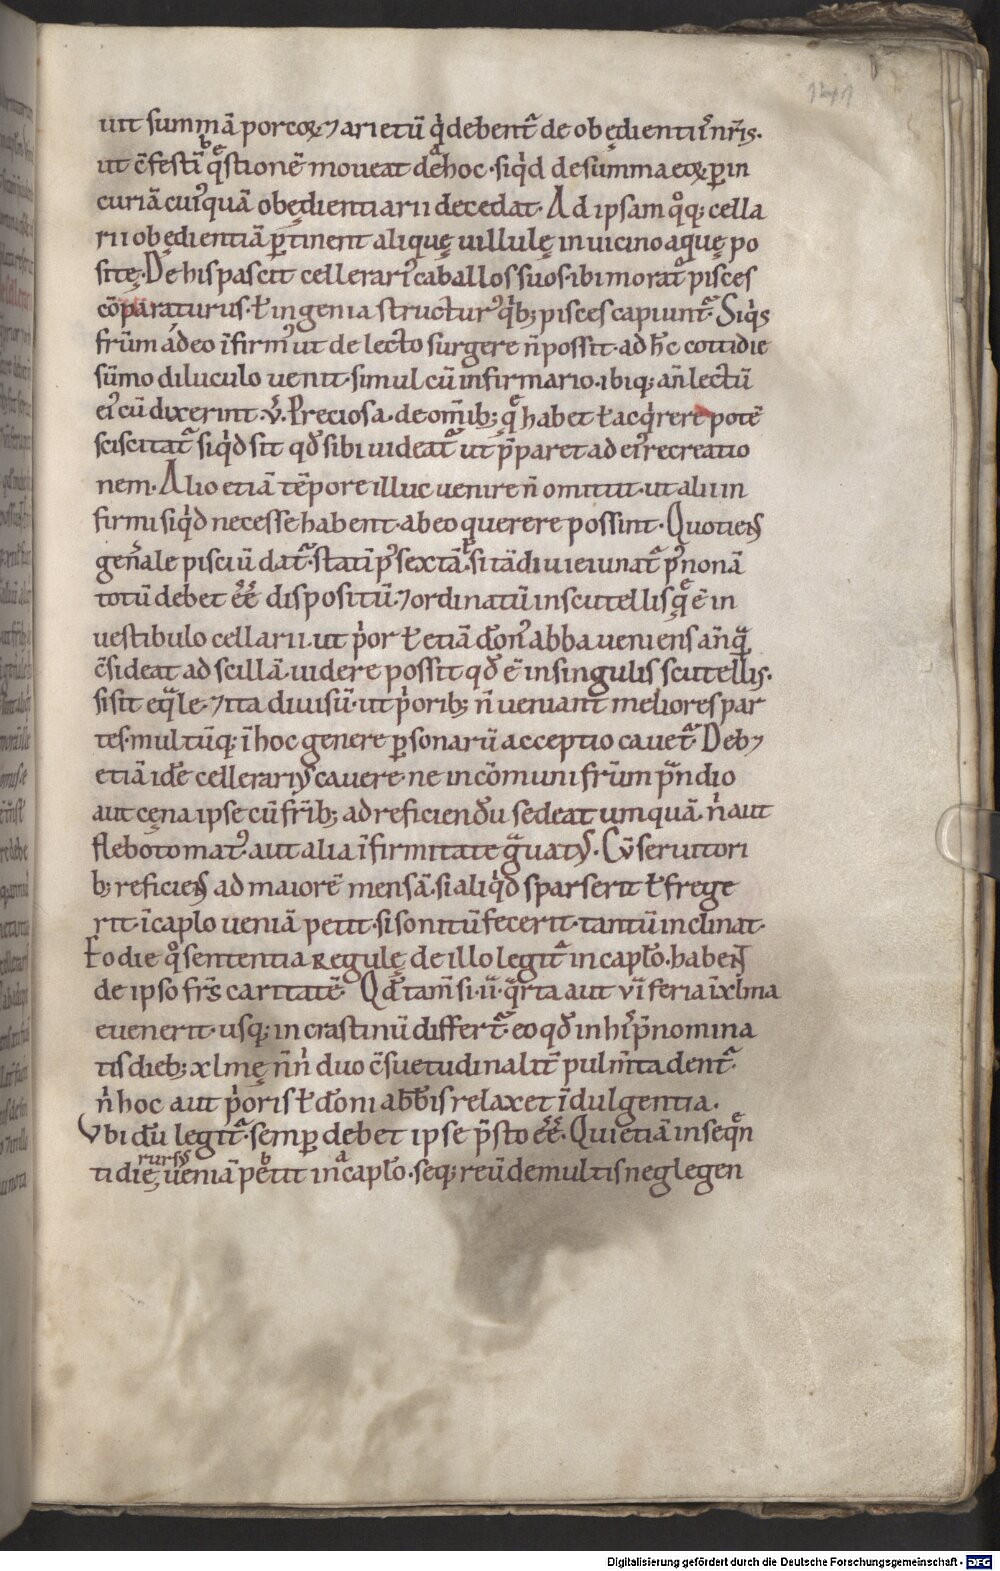 141
uit summā porcoꝝ ⁊ arietū q̇ debent᷑ de obędientiı̄ nr̄is.
ut c̄festı̄ q̄stionē moveat de hoc · siq̇d de summa eoꝝ ꝑ in
curiā cuiꝰquā obędientiarii decedat · Ad ipsam qͦq; cella
rii obędientiā ꝑtinent aliquę uillulę in uicino aquę po
sitę. De his pascit cellerariꝰ caballos suos · ibi morat᷑ pisces
cōparaturus · ł ingenia structurꝰ qͥb; pisces capiunt᷑. Siqͥs
frūm ádeo īfirmꝰ ut de lecto surgere n̄ possit · ad h̄c cottidie
sūmo diluculo uenit · simul cū infirmario · ibiq; an̄ lectū
eiꝰ cū dixerint · v̄. Preciosa · de om̄ib; q̄ habet ł acqͥrere potē
sciscitat᷑ siqͥd sit qđ sibi uideat᷑ ut p̄paret ad eiꝰ recreatio
nem · Alio etiā tēpore illuc uenire n̄ omittit · ut alii in
firmi siqͥd necesse habent · ab eo querere possint · Quotiens
gen̄ale pisciū dat᷑ · statī pꝰ sextā · si tādiu ieiunat᷑ pꝰ nonā
totū debet ēē dispositū · ⁊ ordinatū in scutellis q̄ ē in
uestibulo cellarii · ut pͥor ł etiā don̄ꝰ abba ueniens an̄qͣ
c̄sideat ad scillā · uidere possit qđ ē in singulis scutellis ·
si sit eqͣle · ⁊ ita diuisū · ut pͥorib; n̄ ueniant meliores par
tes · multūq; ī hoc genere ꝑsonarū acceptio cauet᷑. Deb⁊
etiā idē cellerariꝰ cavere · ne in cōmuni frūm p̄ndio
aut cęna ipse cū fr̄ib; ad reficiendū sedeat umquā · nͥ aut
flebotomatꝰ · aut alia īfirmitate gͣuatꝰ. Cū seruitori
b; reficiens ad maiorē mensā · si aliqͥd sparserit ł frege
rit · ī capło ueniā petit · si sonitū fecerit · tantū inclinat ·
Eo die qͦ sententia regulę de illo legit᷑ in capło · habens
de ipso fr̄s caritatē. Qđ tam̄ si · ii · qͣrta aut vi feria ī xlma
evenerit · usq; in crastinū differt᷑ · eo qđ in hiꝰ p̄nomina
tis dieb; xlmę n̄ nͥ duo c̄suetudinalit̄ pulm̄ta dent᷑ ·
nͥ hoc aut pͥoris ł dōni abb̄is relaxet īdulgentia ·
Vbi dū legit᷑ · semꝑ debet ipse p̄sto ēē. Qui etiā in seqn̄
rursꝰ
ti die ueniā petit in capło · seq; reū de multis neglegen